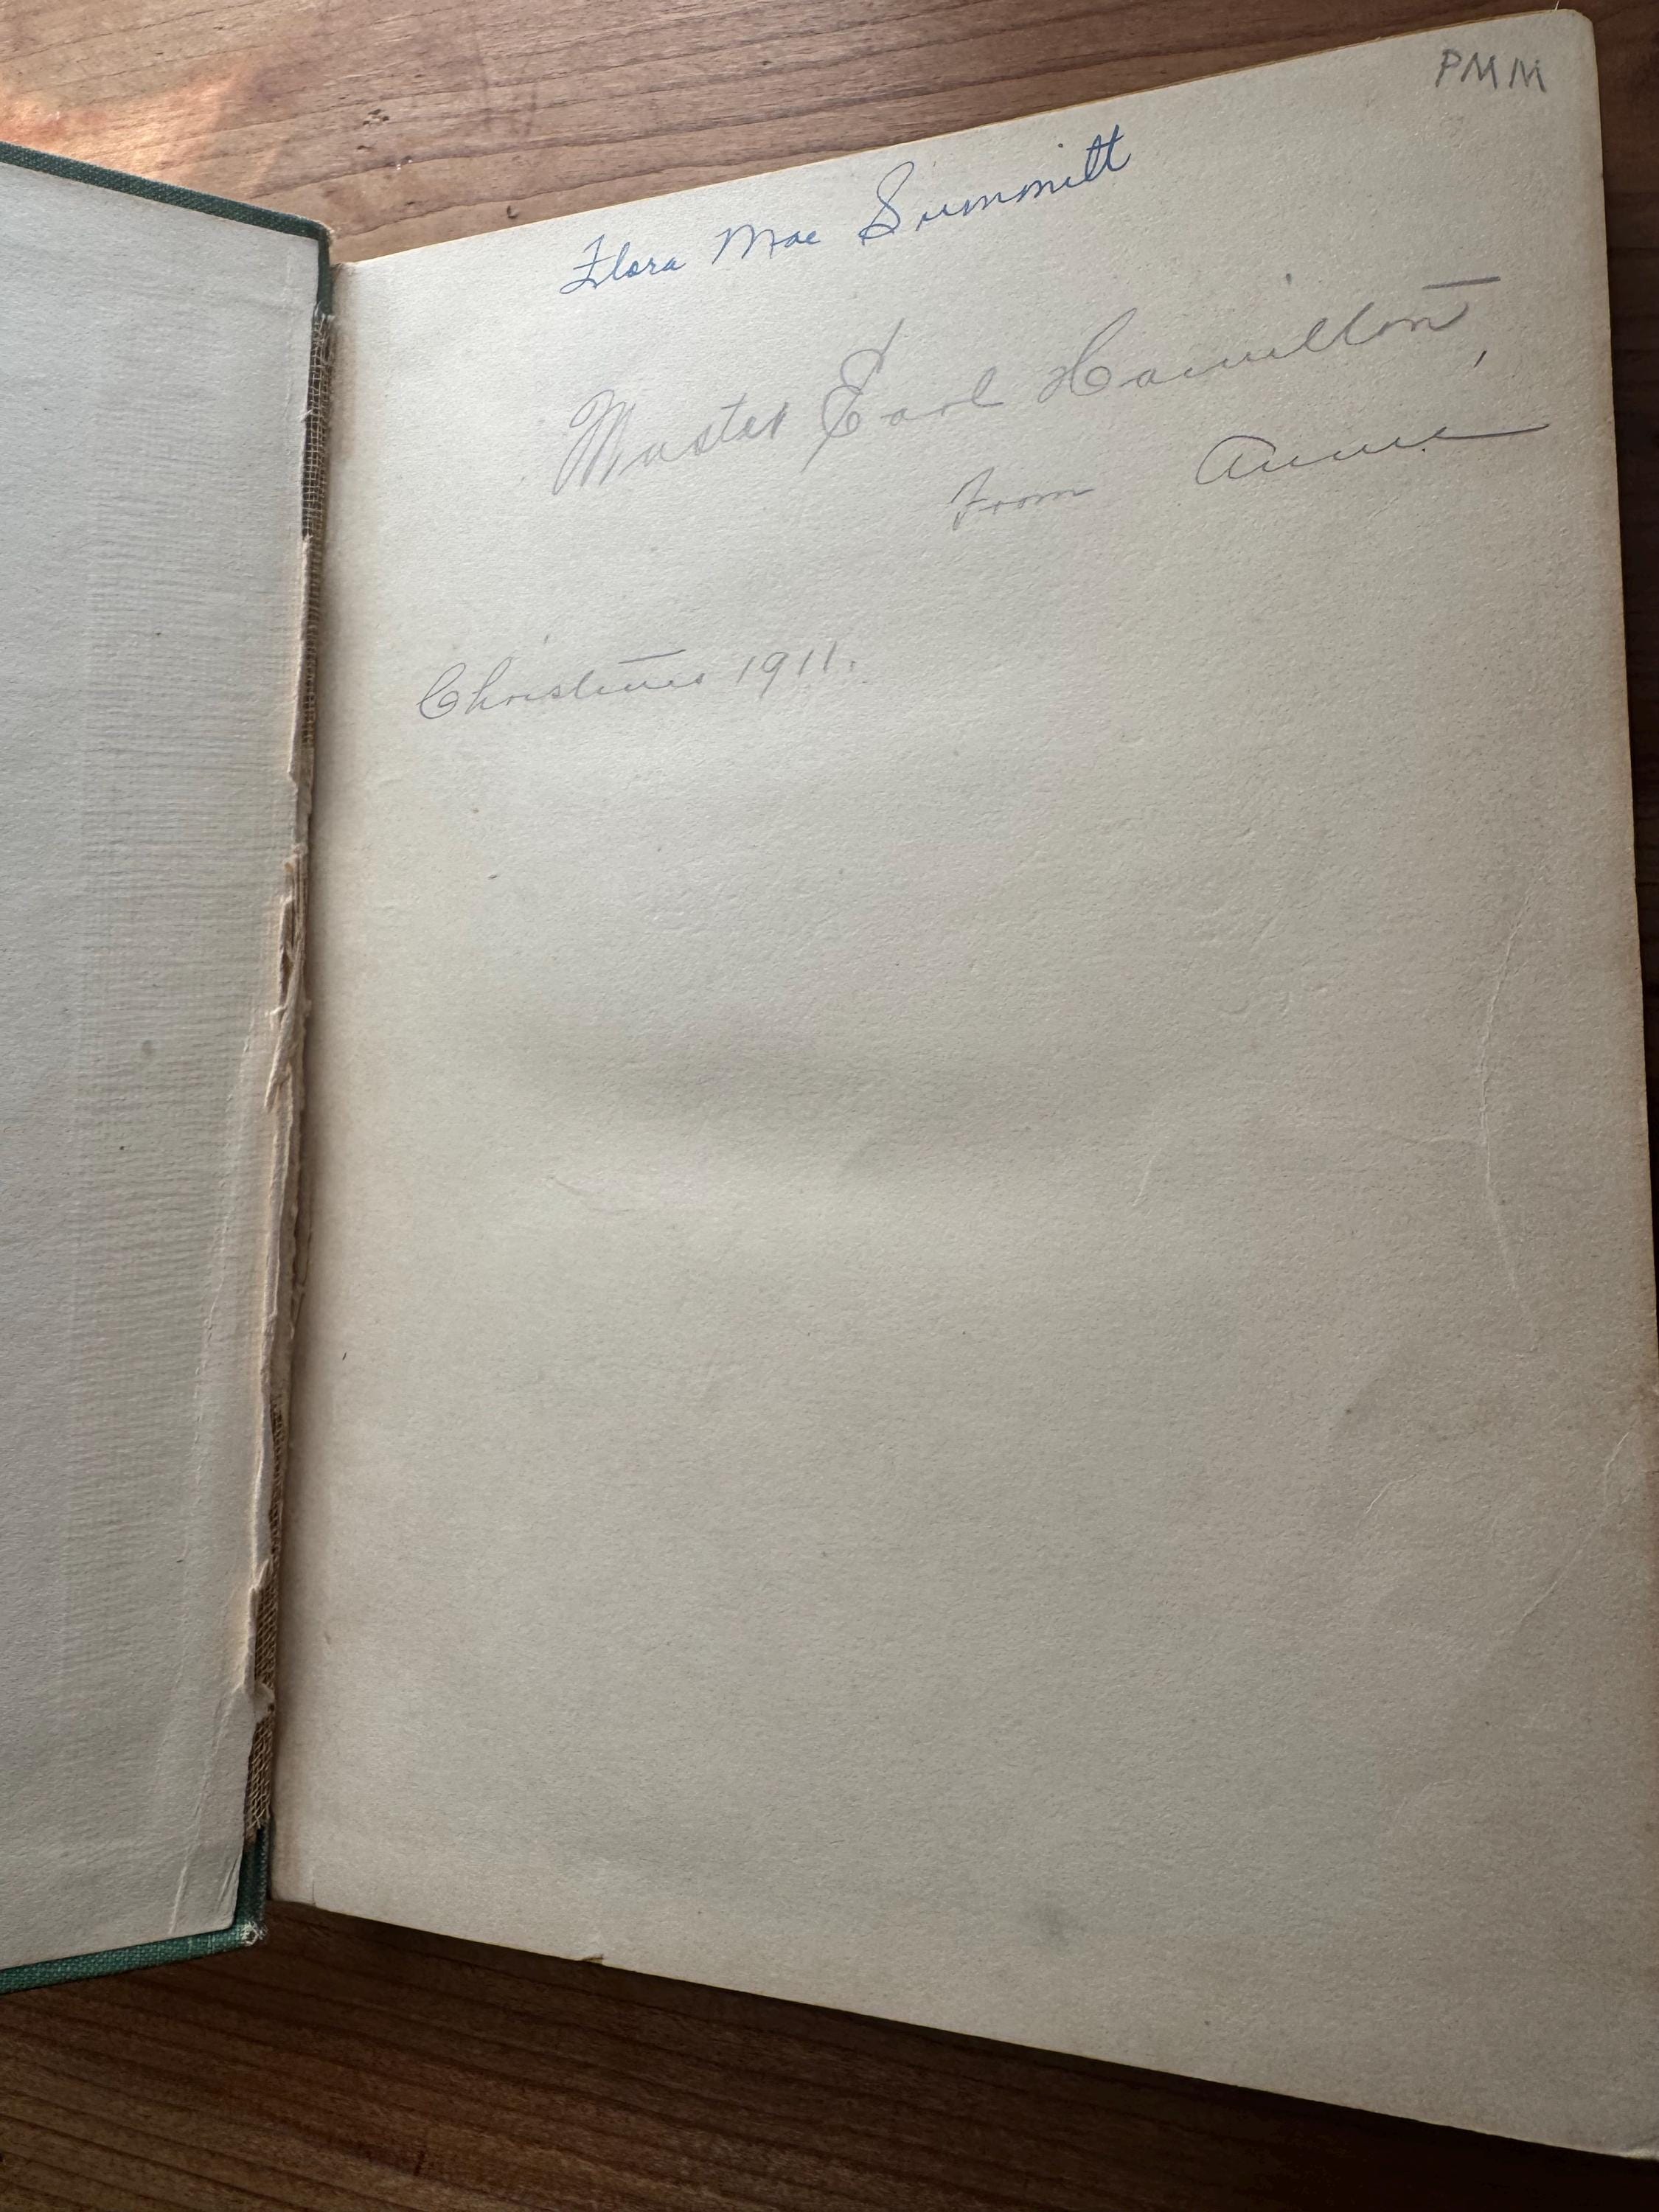 PMM
Flora Mae Summitt
Master Earl Hamilton,
From Anna.
Christmas 1911.